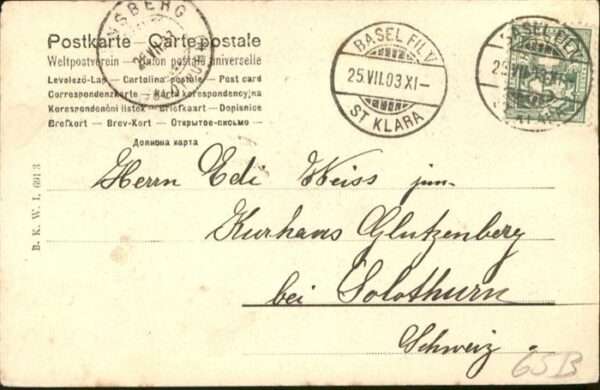 Postkarte – Carte postale
Weltpostverein – Union postale universelle
Levelező-Lap – Cartolina postale – Post card
Correspondenzkarte – Karta korespondencyjna
Korespondenční lístek – Briefkaart – Dopisnice
Brefkort – Brev-Kort – Открытое письмо
Дописна карта
SBERG
25.VII.03
BASEL FIL. V
25.VII.03.XI–
ST KLARA
BASEL FIL. V
25.VII.03.XI–
B. K. W. I. 691 3
Herrn Edi Weiss jun.
Kurhaus Glutzenberg
bei Solothurn
Schweiz.
65B